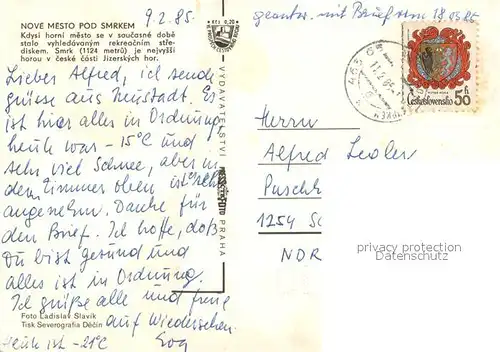 NOVÉ MĚSTO POD SMRKEM
Kdysi horní město se v současné době
stalo vyhledávaným rekreačním stře-
diskem. Smrk (1124 metrů) je nejvyšší
horou v české části Jizerských hor.
9.2.85.
Lieber Alfred, ich sende
grüsse aus Neustadt. Es
ist hier alles in Ordnung,
heute war -15°C und
sehr viel Schnee, aber in
dem Zimmer oben ist sehr
angenehm. Danke für
den Brief. Ich hoffe, daß
Du bist gesund und
alles ist in Ordnung.
Ich grüße alle und
auf Wiedersehen.
Heute ist -21°C
Foto Ladislav Slavík
Tisk Severografia Děčín
Kčs 0,20
VYDAVATELSTVÍ
PRAHA
geantw. mit Brief vom 18.03.85
Československo 50 h
Herrn
Alfred
1254
NDR
privacy protection
watermark